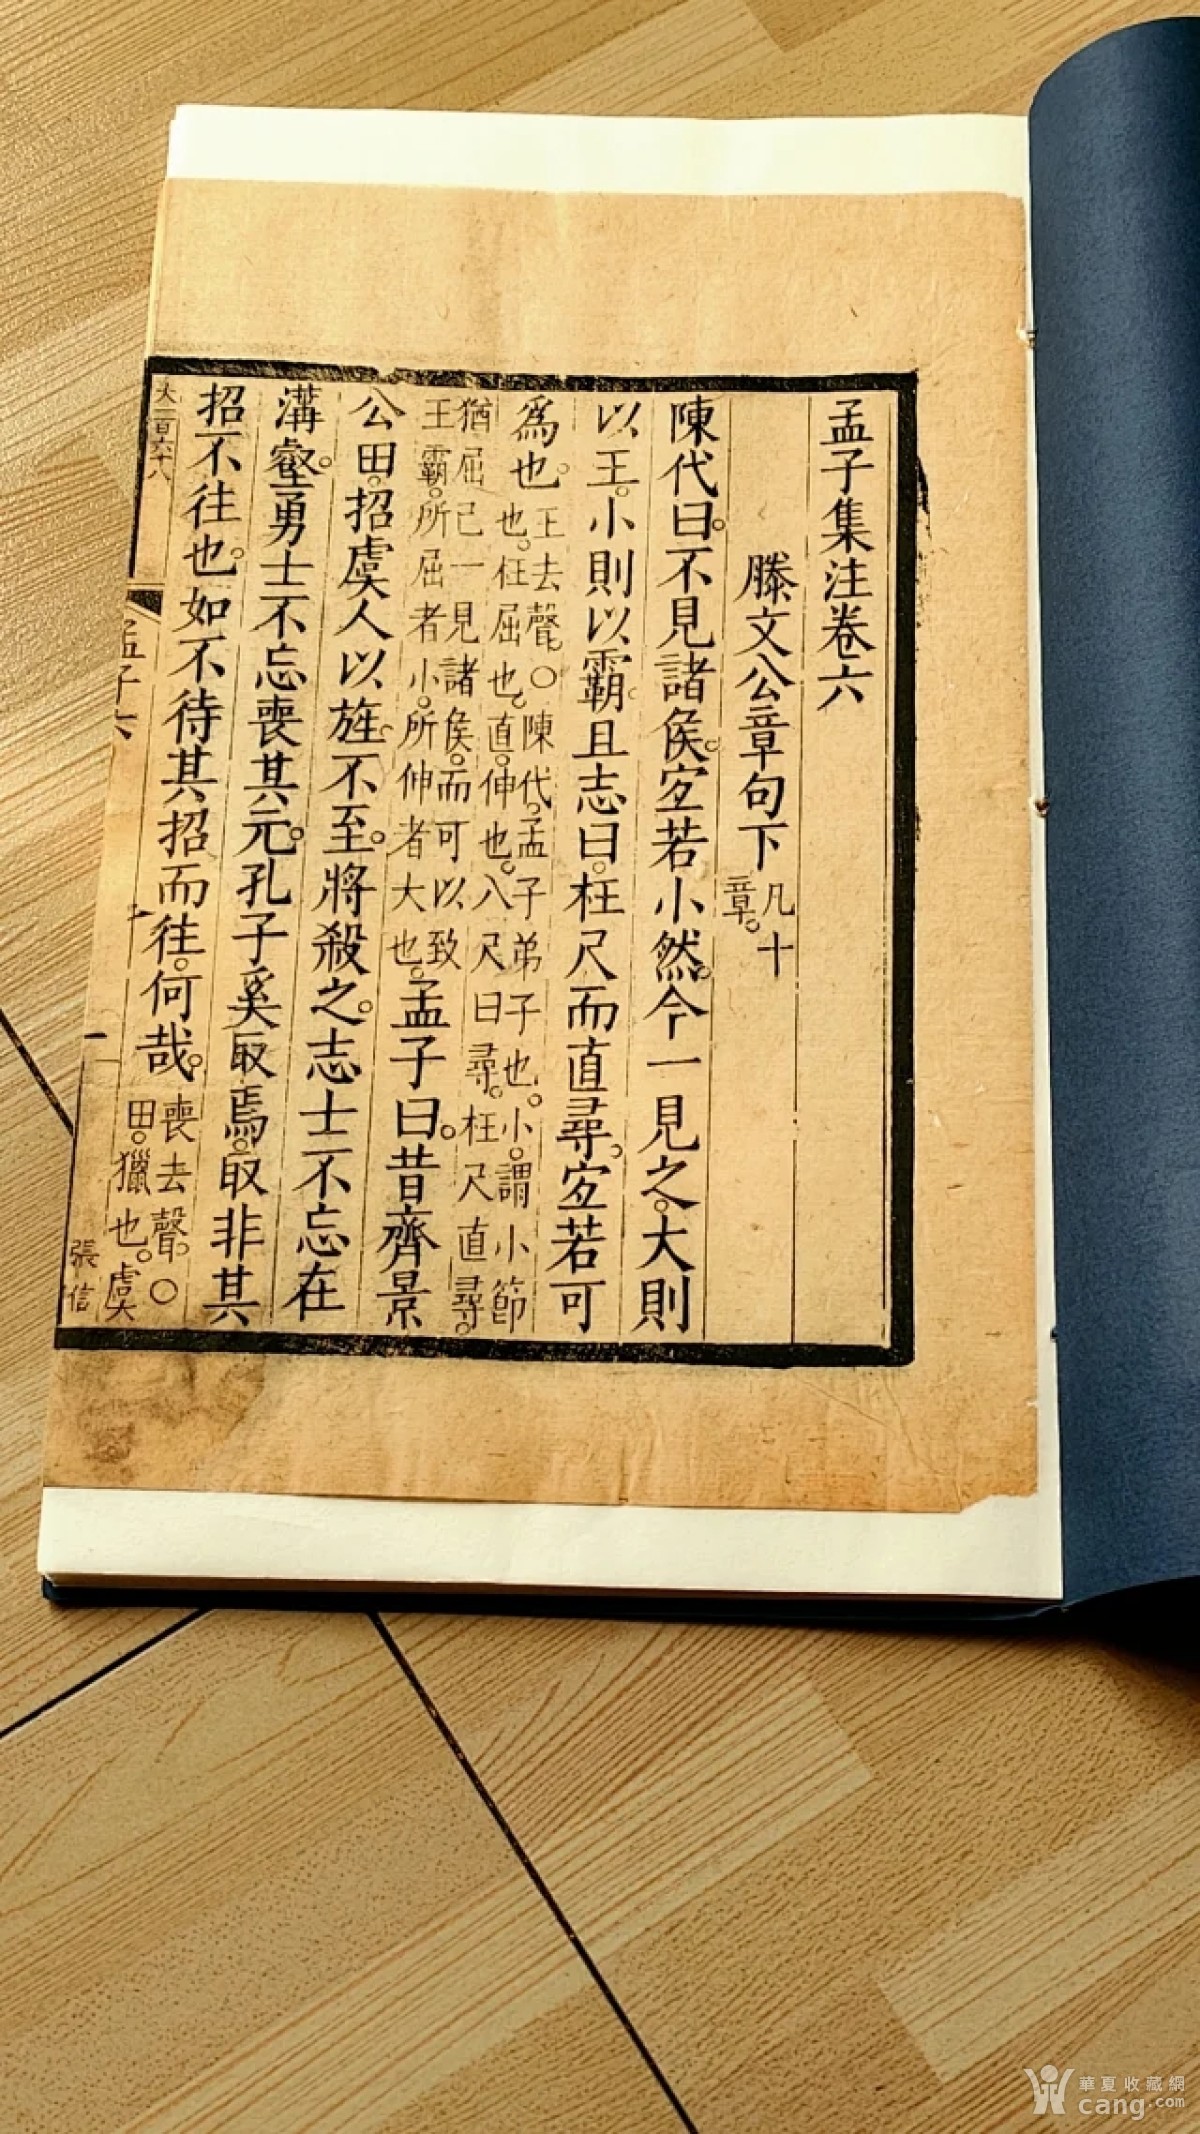 孟子集注卷六
滕文公章句下 凡十
章。
陳代曰。不見諸侯。宜若小然。今一見之。大則
以王。小則以霸。且志曰。枉尺而直尋。宜若可
爲也。王去聲。○陳代。孟子弟子也。小。謂小節
也。枉屈也。直。伸也。八尺曰尋。枉尺直尋。
猶屈己一見諸侯。而可以致
王霸。所屈者小。所伸者大也。孟子曰。昔齊景
公田。招虞人以旌。不至。將殺之。志士不忘在
溝壑。勇士不忘喪其元。孔子奚取焉。取非其
招不往也。如不待其招而往。何哉。喪去聲。○
田。獵也。虞
大二百六八
孟子六
一
張信
華夏收藏網
cang.com